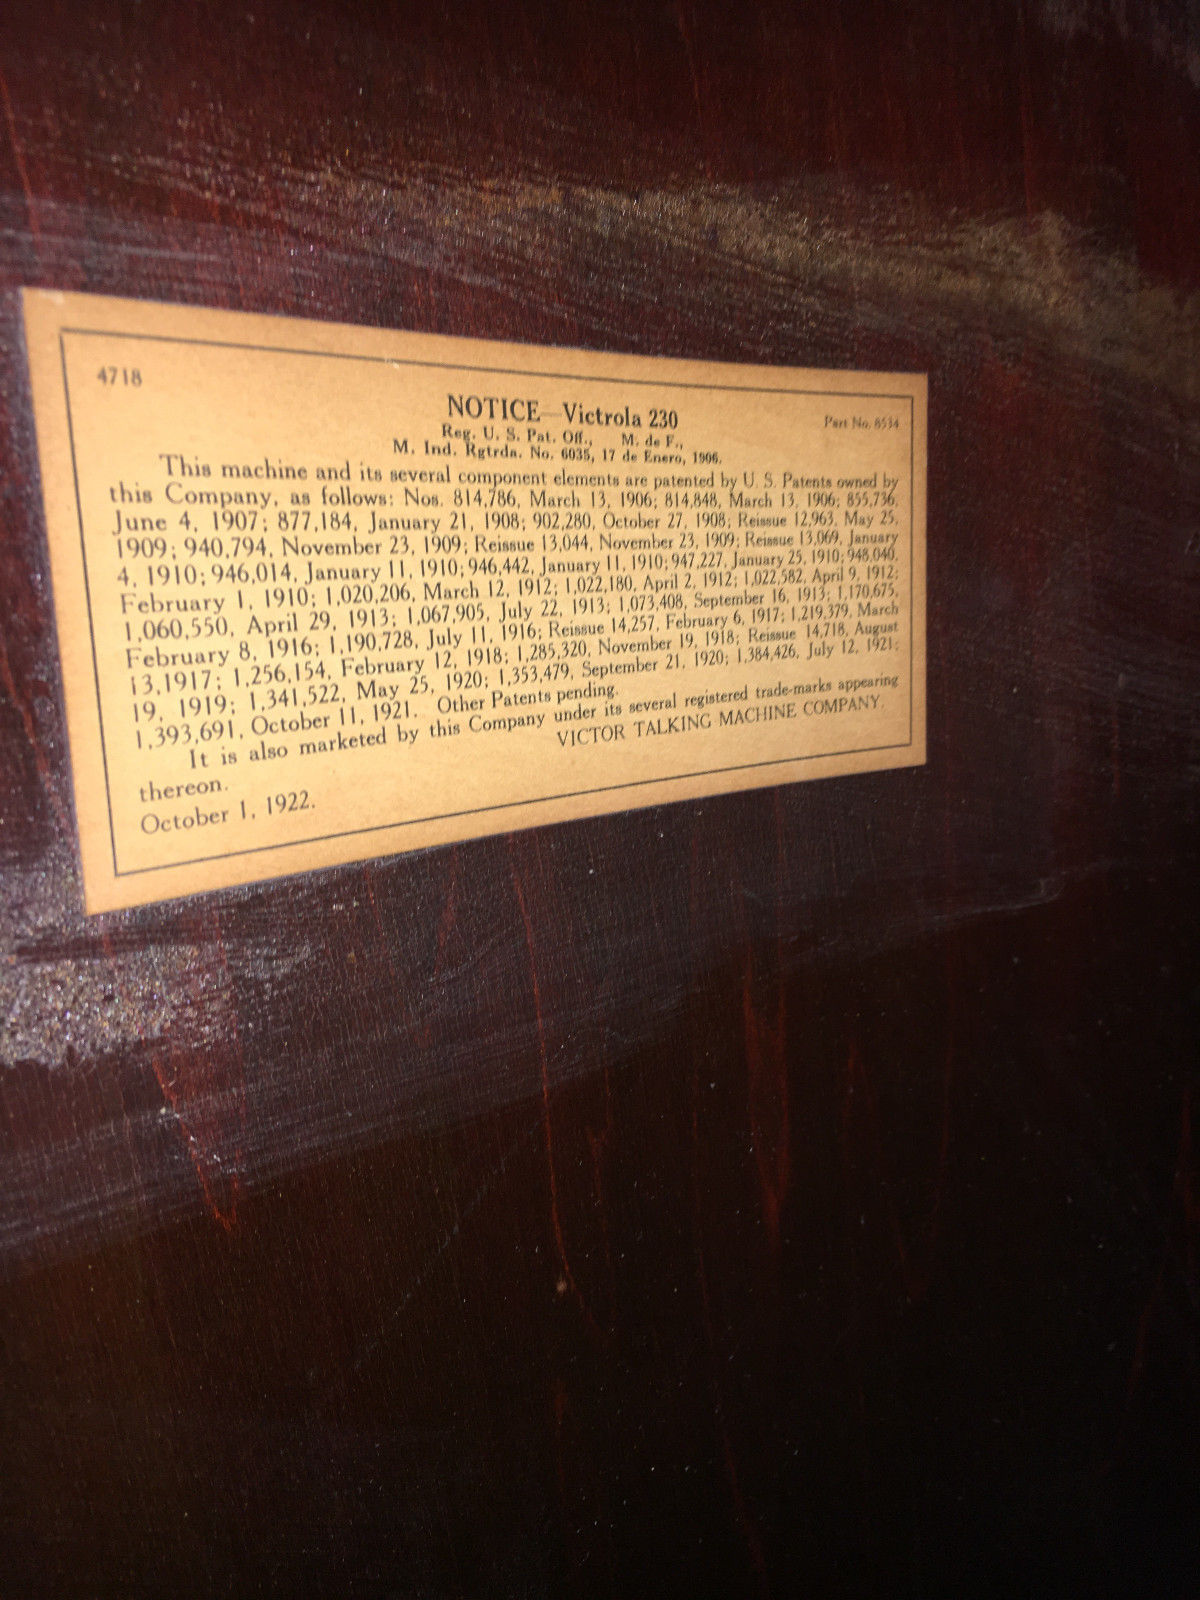 4718
NOTICE—Victrola 230
Part No. 8534
Reg. U. S. Pat. Off., M. de F.,
M. Ind. Rgtrda. No. 6035, 17 de Enero, 1906.
This machine and its several component elements are patented by U. S. Patents owned by
this Company, as follows: Nos. 814,786, March 13, 1906; 814,848, March 13, 1906; 855,736,
June 4, 1907; 877,184, January 21, 1908; 902,280, October 27, 1908; Reissue 12,963, May 25,
1909; 940,794, November 23, 1909; Reissue 13,044, November 23, 1909; Reissue 13,069, January
4, 1910; 946,014, January 11, 1910; 946,442, January 11, 1910; 947,227, January 25, 1910; 948,040,
February 1, 1910; 1,020,206, March 12, 1912; 1,022,180, April 2, 1912; 1,022,582, April 9, 1912;
1,060,550, April 29, 1913; 1,067,905, July 22, 1913; 1,073,408, September 16, 1913; 1,170,675,
February 8, 1916; 1,190,728, July 11, 1916; Reissue 14,257, February 6, 1917; 1,219,379, March
13,1917; 1,256,154, February 12, 1918; 1,285,320, November 19, 1918; Reissue 14,718, August
19, 1919; 1,341,522, May 25, 1920; 1,353,479, September 21, 1920; 1,384,426, July 12, 1921;
1,393,691, October 11, 1921. Other Patents pending.
It is also marketed by this Company under its several registered trade-marks appearing
thereon.
VICTOR TALKING MACHINE COMPANY.
October 1, 1922.